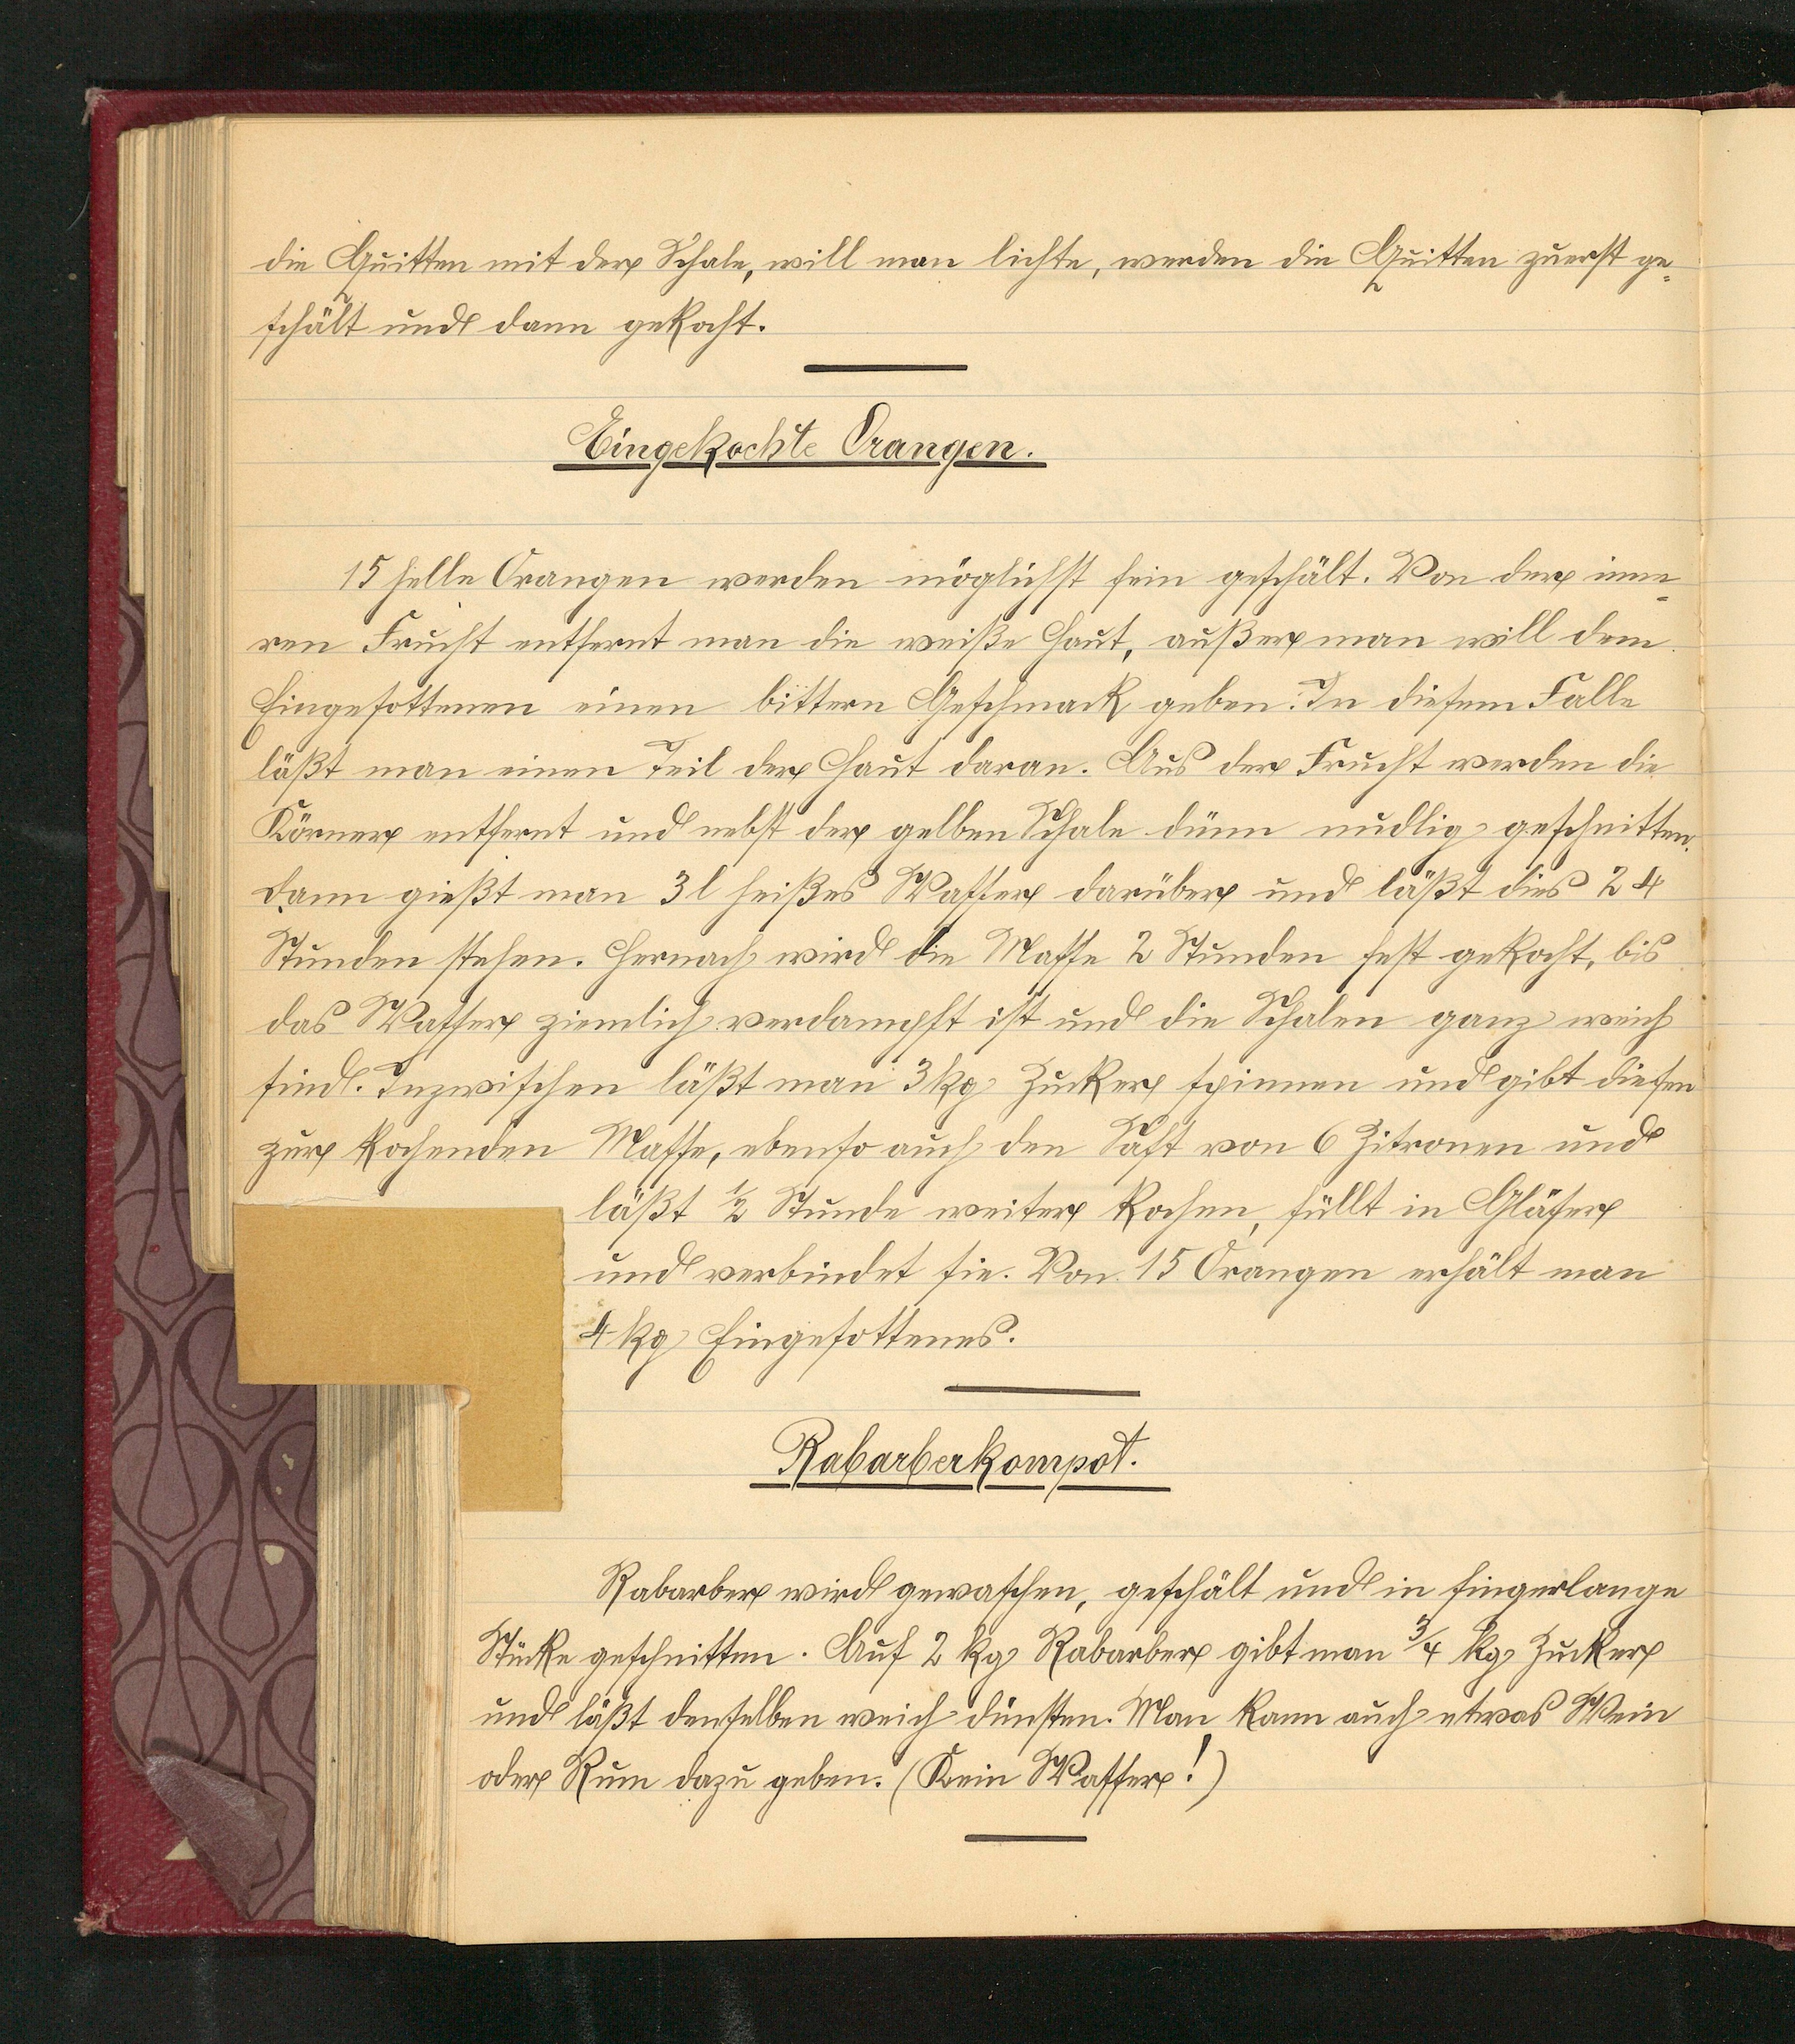 die Quitten mit der Schale, will man lichte, werden die Quitten zuerst ge-
schält und dann gekocht.
Eingekochte Orangen.
15 helle Orangen werden möglichst fein geschält. Von der inne-
ren Frucht entfernt man die weiße Haut, außer man will dem
Eingesottenen einen bittern Geschmack geben. In diesem Falle
läßt man einen Teil der Haut daran. Aus der Frucht werden die
Körner entfernt und nebst der gelben Schale dünn nudlig geschnitten.
Dann gießt man 3 l heißes Wasser darüber und läßt dies 24
Stunden stehen. Hernach wird die Masse 2 Stunden fest gekocht, bis
das Wasser ziemlich verdampft ist und die Schalen ganz weich
sind. Inzwischen läßt man 3 kg Zucker spinnen und gibt diesen
zur kochenden Masse, ebenso auch den Saft von 6 Zitronen und
läßt 1/2 Stunde weiter kochen, füllt in Gläser
und verbindet sie. Von 15 Orangen erhält man
4 kg Eingesottenes.
Rabarberkompot.
Rabarber wird gewaschen, geschält und in fingerlange
Stücke geschnitten. Auf 2 kg Rabarber gibt man 3/4 kg Zucker
und läßt denselben weich dünsten. Man kann auch etwas Wein
oder Rum dazu geben. (Kein Wasser!)